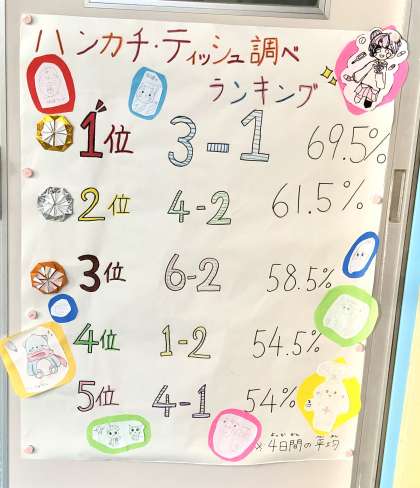 ハンカチ・ティッシュ調べ
ランキング
1位 3-1 69.5%
2位 4-2 61.5%
3位 6-2 58.5%
4位 1-2 54.5%
5位 4-1 54%
※4日間の平均